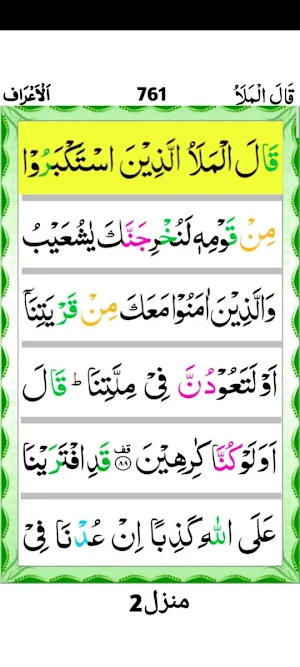 اَلْاَعْرَاف 761 قَالَ الْمَلَاُ
قَالَ الْمَلَاُ الَّذِیْنَ اسْتَکْبَرُوْا
مِنْ قَوْمِهٖ لَنُخْرِجَنَّكَ یٰشُعَیْبُ
وَالَّذِیْنَ اٰمَنُوْا مَعَكَ مِنْ قَرْیَتِنَاۤ
اَوْ لَتَعُوْدُنَّ فِیْ مِلَّتِنَا ؕ قَالَ
اَوَلَوْ کُنَّا کٰرِهِیْنَ ۟ قف ۸۸ قَدِ افْتَرَیْنَا
عَلَی اللّٰهِ کَذِبًا اِنْ عُدْنَا فِیْ
منزل2